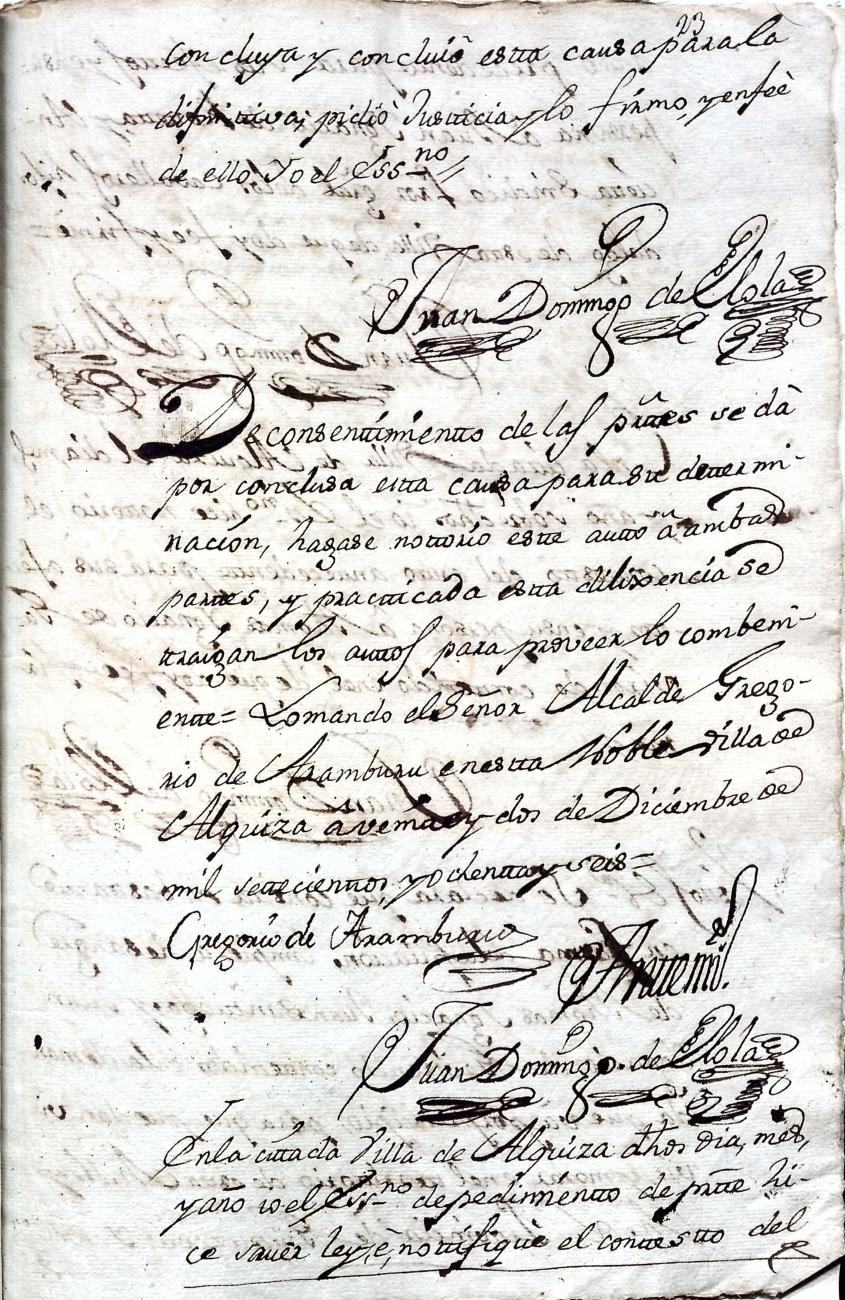 23
concluya y concluiô esta causa para la
difinitiva, pidiò Justicia y lo firmo, y en feè
de ello Yo el Essno
Juan Domingo de Elola
De consentimiento de las prtes se dà
por conclusa esta causa para su determi-
nación, hagase nottorio este autto â ambas
partes, y practicada esta dilixencia se
traigan los auttos para proveer lo combeni-
ente= Lo mando el Señor Alcalde Grego-
rio de Aramburu en esta Noble Villa de
Alquiza â veinte y dos de Diciembre de
mil settecienttos, y ochenta y seis=
Gregorio de Aramburu
Antemi
Juan Domingo de Elola
En la cittada Villa de Alquiza dhos dia, mes,
y año io el Essno de pedimiento de prtte hi-
ce saver leyè, è nottifiquè el contestto del